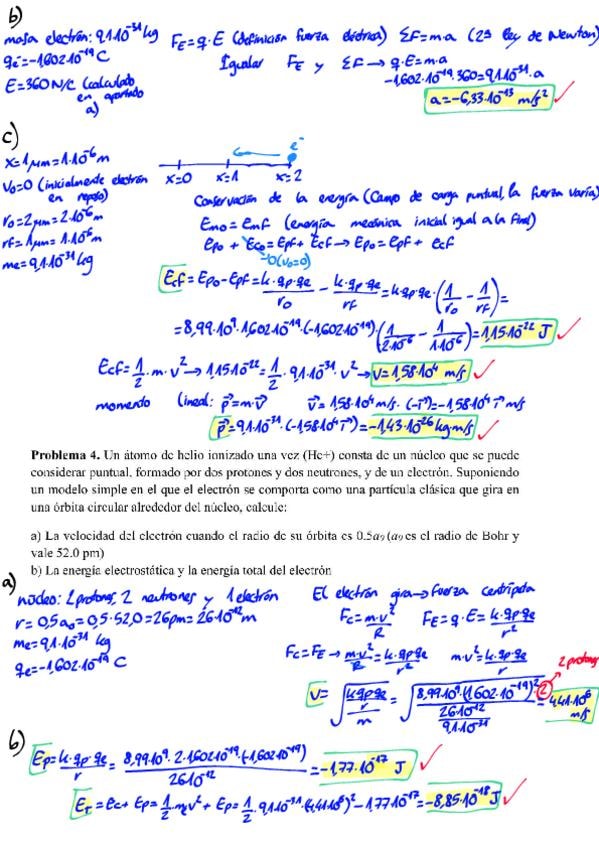 b)
masa electrón: 9,1·10⁻³¹ kg
qe = -1,602·10⁻¹⁹ C
E = 360 N/C (calculado en apartado a)
F_E = q·E (definición fuerza eléctrica) ΣF = m·a (2ª ley de Newton)
Igualar F_E y ΣF → q·E = m·a
-1,602·10⁻¹⁹·360 = 9,1·10⁻³¹·a
a = -6,33·10⁻¹³ m/s² ✓
c)
x = 1 μm = 1·10⁻⁶ m
v₀ = 0 (inicialmente electrón en reposo)
r₀ = 2 μm = 2·10⁻⁶ m
rf = 1 μm = 1·10⁻⁶ m
me = 9,1·10⁻³¹ kg
e⁻
x=0 x=1 x=2
Conservación de la energía (Campo de carga puntual, la fuerza varía)
Em₀ = Emf (energía mecánica inicial igual a la final)
Ep₀ + Ec₀ = Epf + Ecf → Ep₀ = Epf + Ecf
0 (v₀=0)
Ecf = Ep₀ - Epf = k·qp·qe/r₀ - k·qp·qe/rf = k·qp·qe·(1/r₀ - 1/rf) =
= 8,99·10⁹·1,602·10⁻¹⁹·(-1,602·10⁻¹⁹)·(1/2·10⁻⁶ - 1/1·10⁻⁶) = 1,15·10⁻²² J ✓
Ecf = 1/2·m·v² → 1,15·10⁻²² = 1/2·9,1·10⁻³¹·v² → v = 1,58·10⁴ m/s ✓
momento lineal: p⃗ = m·v⃗ v⃗ = 1,58·10⁴ m/s·(-i⃗) = -1,58·10⁴ i⃗ m/s
p⃗ = 9,1·10⁻³¹·(-1,58·10⁴ i⃗) = -1,43·10⁻²⁶ kg·m/s ✓
Problema 4. Un átomo de helio ionizado una vez (He+) consta de un núcleo que se puede
considerar puntual, formado por dos protones y dos neutrones, y de un electrón. Suponiendo
un modelo simple en el que el electrón se comporta como una partícula clásica que gira en
una órbita circular alrededor del núcleo, calcule:
a) La velocidad del electrón cuando el radio de su órbita es 0.5a₀ (a₀ es el radio de Bohr y
vale 52.0 pm)
b) La energía electrostática y la energía total del electrón
a)
núcleo: 2 protones, 2 neutrones y 1 electrón
r = 0,5 a₀ = 0,5·52,0 = 26 pm = 26·10⁻¹² m
me = 9,1·10⁻³¹ kg
qe = -1,602·10⁻¹⁹ C
El electrón gira → Fuerza centrípeta
Fc = m·v²/R F_E = q·E = k·qp·qe/r²
Fc = F_E → m·v²/R = k·qp·qe/r² m·v² = k·qp·qe/r
2 protones
v = √((k·qp·qe/r)/m) = √((8,99·10⁹·(1,602·10⁻¹⁹)²·2/26·10⁻¹²)/9,1·10⁻³¹) = 4,41·10⁶ m/s
b)
Ep = k·qp·qe/r = 8,99·10⁹·2·1,602·10⁻¹⁹·(-1,602·10⁻¹⁹)/26·10⁻¹² = -1,77·10⁻¹⁷ J ✓
E_T = Ec + Ep = 1/2·me·v² + Ep = 1/2·9,1·10⁻³¹·(4,41·10⁶)² - 1,77·10⁻¹⁷ = -8,85·10⁻¹⁸ J ✓